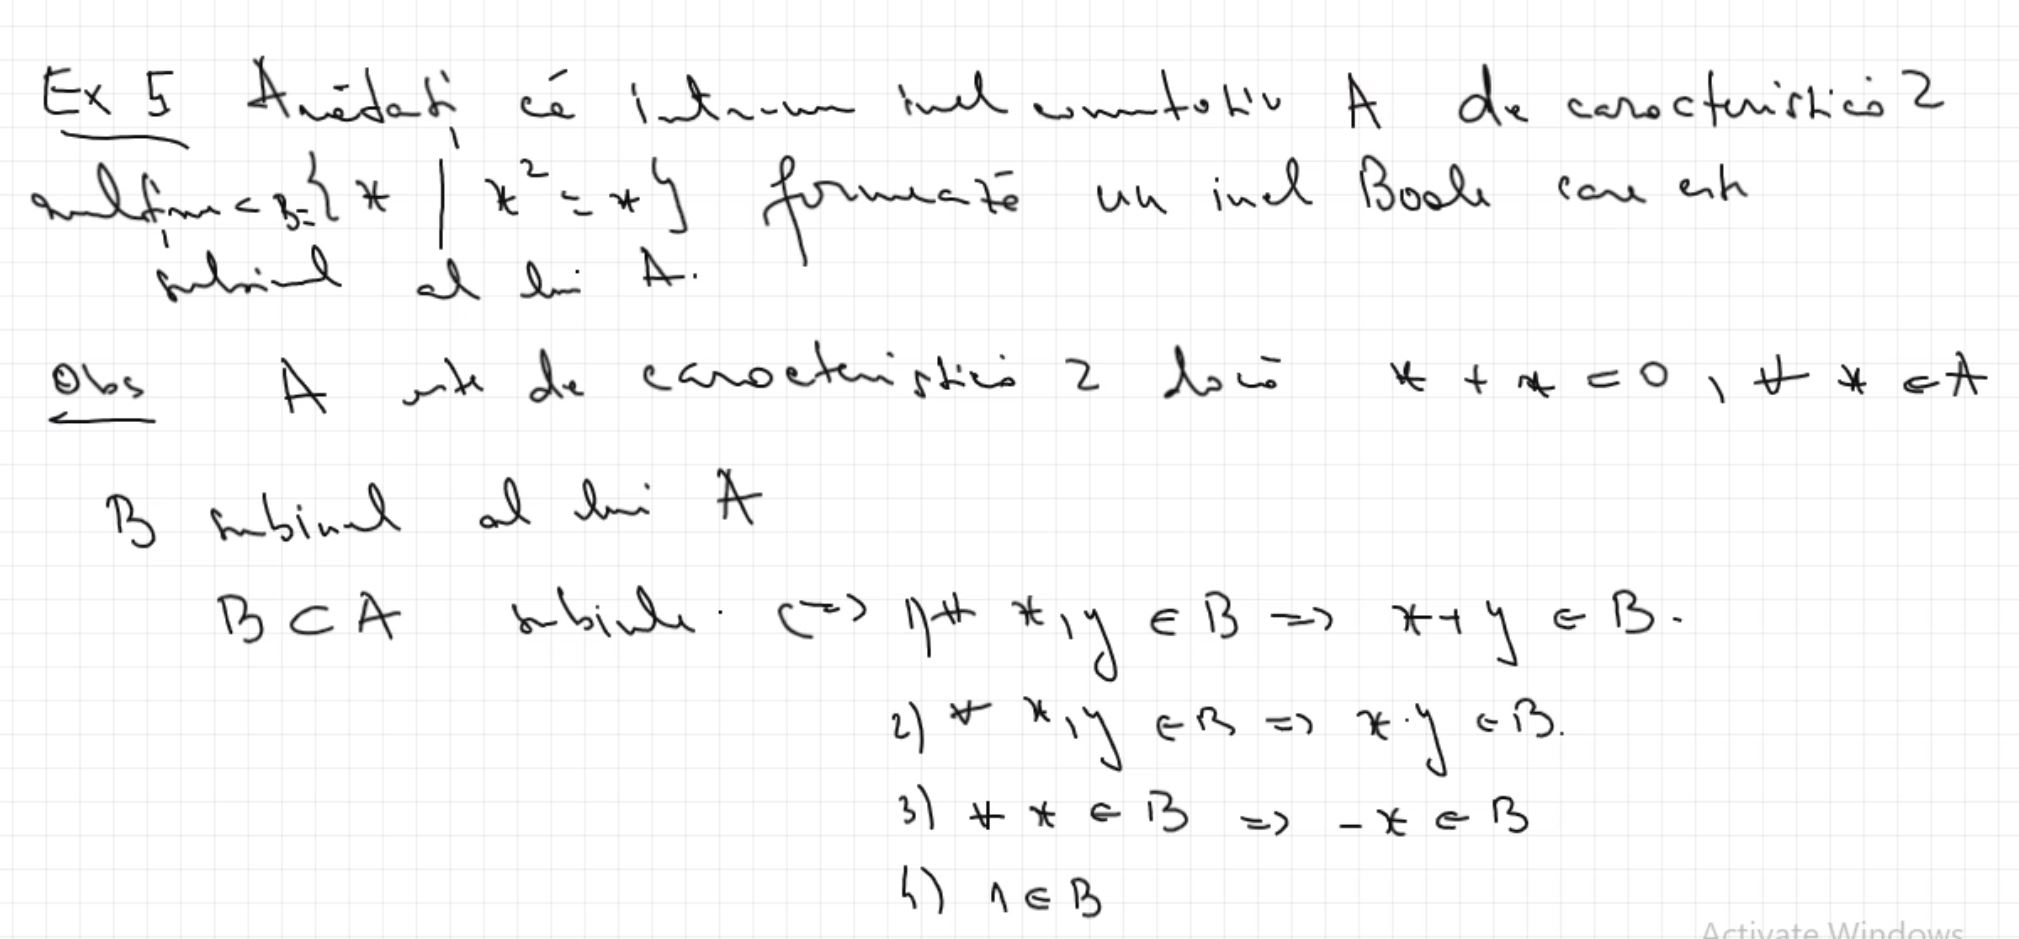 Ex 5 Arătați că într-un inel comutativ A de caracteristică 2
mulțimea B = { x | x² = x } formează un inel Boole care este
subinel al lui A.
Obs A este de caracteristică 2 dacă x + x = 0, ∀ x ∈ A
B subinel al lui A
B ⊂ A subinel. (=> 1) ∀ x, y ∈ B => x + y ∈ B.
2) ∀ x, y ∈ B => x · y ∈ B.
3) ∀ x ∈ B => - x ∈ B
4) 1 ∈ B
Activate Windows